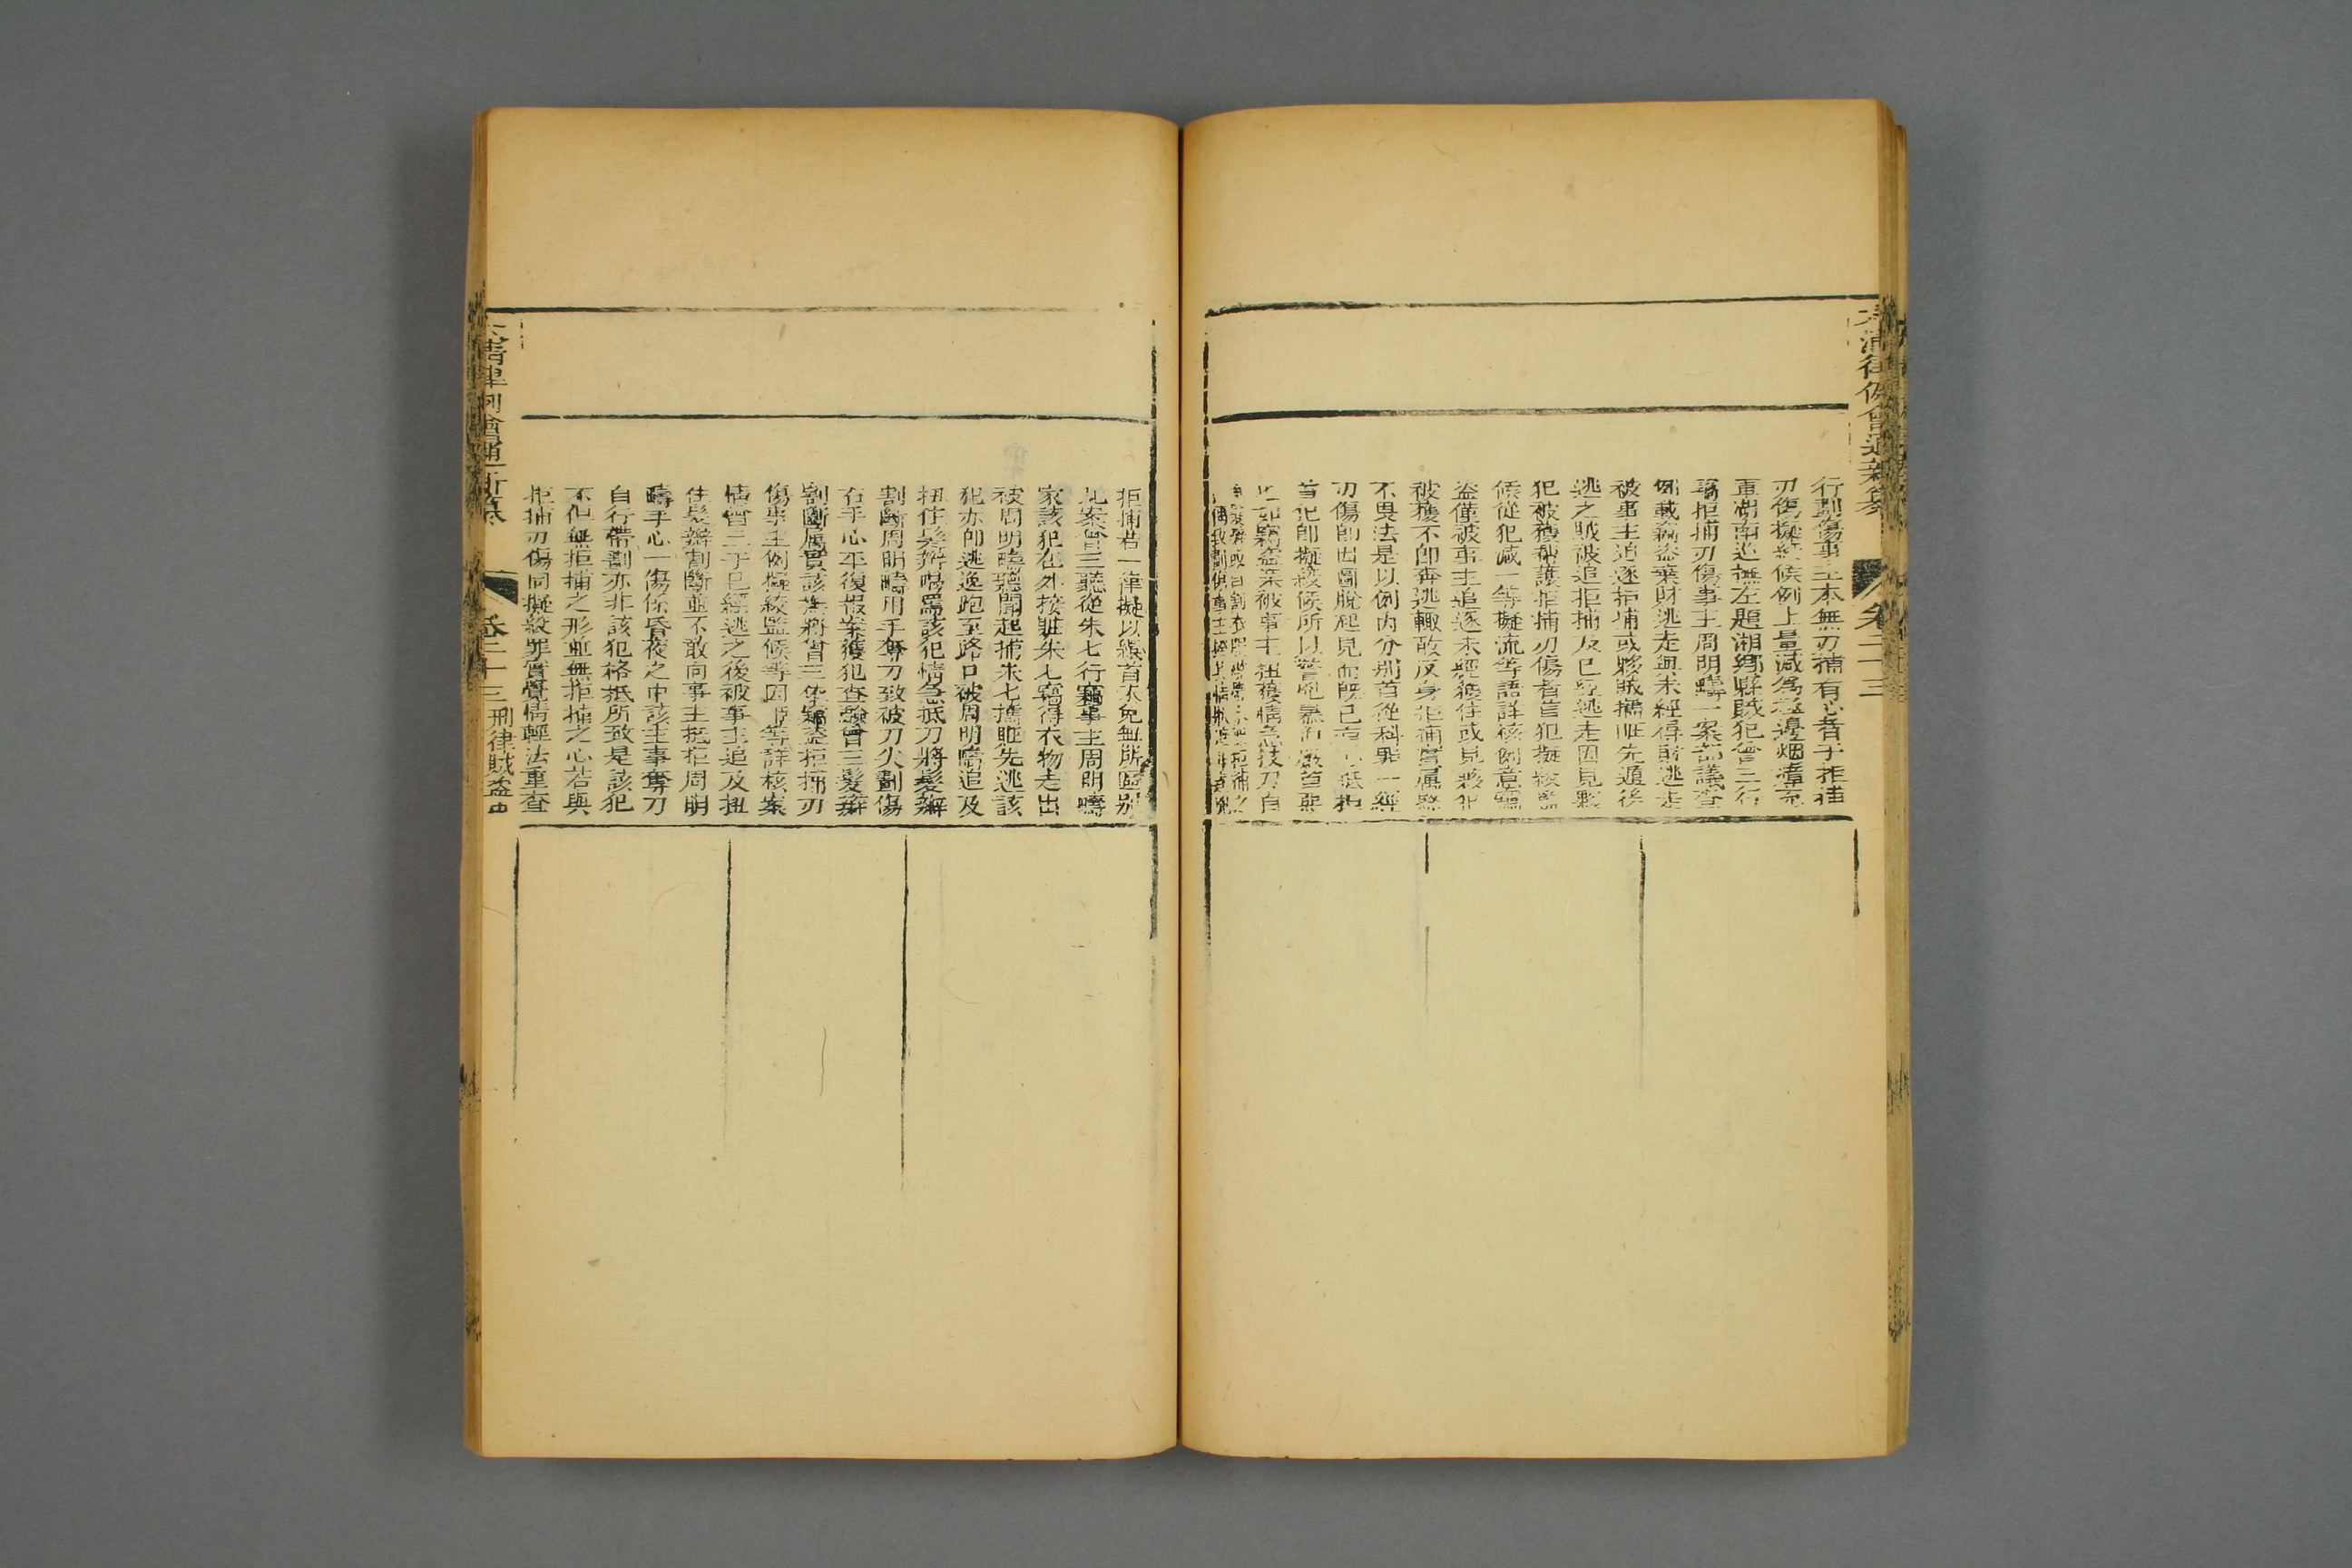 大清律例會通新纂
卷二十三
行劃傷事主本無刃捕有心者于拒捕
刃傷擬絞候例上量減爲極邊烟瘴充
軍湖南巡撫左題湘鄉縣賊犯曾三行
竊拒捕刃傷事主周明疇一案部議查
例載竊盜棄財逃走與未經得財逃走
被事主追逐拒捕或夥賊攜贓先遁後
逃之賊被追拒捕及已經逃走因見夥
犯被獲幫護拒捕刃傷者首犯擬絞監
候從犯減一等擬流等語詳核例意竊
盜僅被事主追逐未經獲住或見夥犯
被獲不卽奔逃輙敢反身拒捕實屬兇
不畏法是以例內分別首從科罪一經
刃傷卽因圖脫起見而旣已有心抵拒
首犯卽擬絞候所以警兇暴而嚴首惡
也如竊盜某被事主扭獲情急拔刀自
拒捕者一律擬以纓首不免無所區別
此案曾三聽從朱七行竊事主周明疇
家該犯在外接贓朱七竊得衣物走出
被周明疇聽聞起捕朱七攜贓先逃該
犯亦卽逃逸跑至路口被周明疇追及
扭住髮辮喝罵該犯情急抵刀將髮辮
割斷周明疇用手奪刀致被刀尖劃傷
右手心平復報案獲犯查驗曾三髮辮
割斷屬實該撫將曾三依竊盜拒捕刃
傷事主例擬絞監候等因具題等詳核案
情曾三于已經逃之後被事主追及扭
住髮辮割斷並不敢向事主抵拒周明
疇手心一傷係昏夜之中該主事奪刀
自行帶劃亦非該犯格抵所致是該犯
不但無拒捕之形並無拒捕之心若與
拒捕刃傷同擬絞罪實覺情輕法重查
大清律例會通新纂
卷二十三
刑律賊盜中